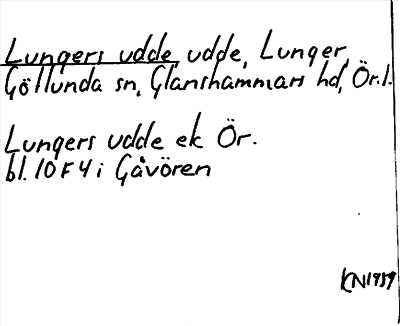 Lungers udde, udde, Lunger,
Göllunda sn, Glanshammars hd, Ör.l.
Lungers udde ek Ör.
bl. 10 F 4 i Gåvören
KN1959